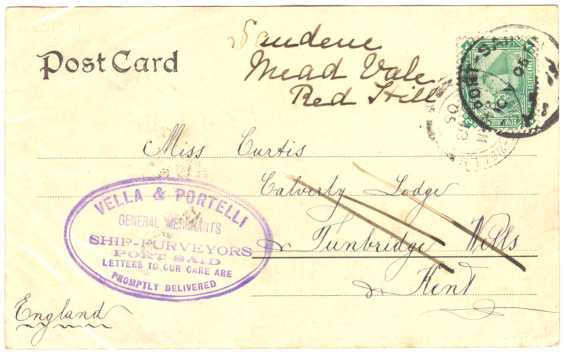 Post Card
Sandene
Mead Vale
Red Hill
PORT-SAID
Miss Curtis
Calverly Lodge
Tunbridge Wells
Kent
VELLA & PORTELLI
GENERAL MERCHANTS
SHIP-PURVEYORS
PORT SAID
LETTERS TO OUR CARE ARE
PROMPTLY DELIVERED
England